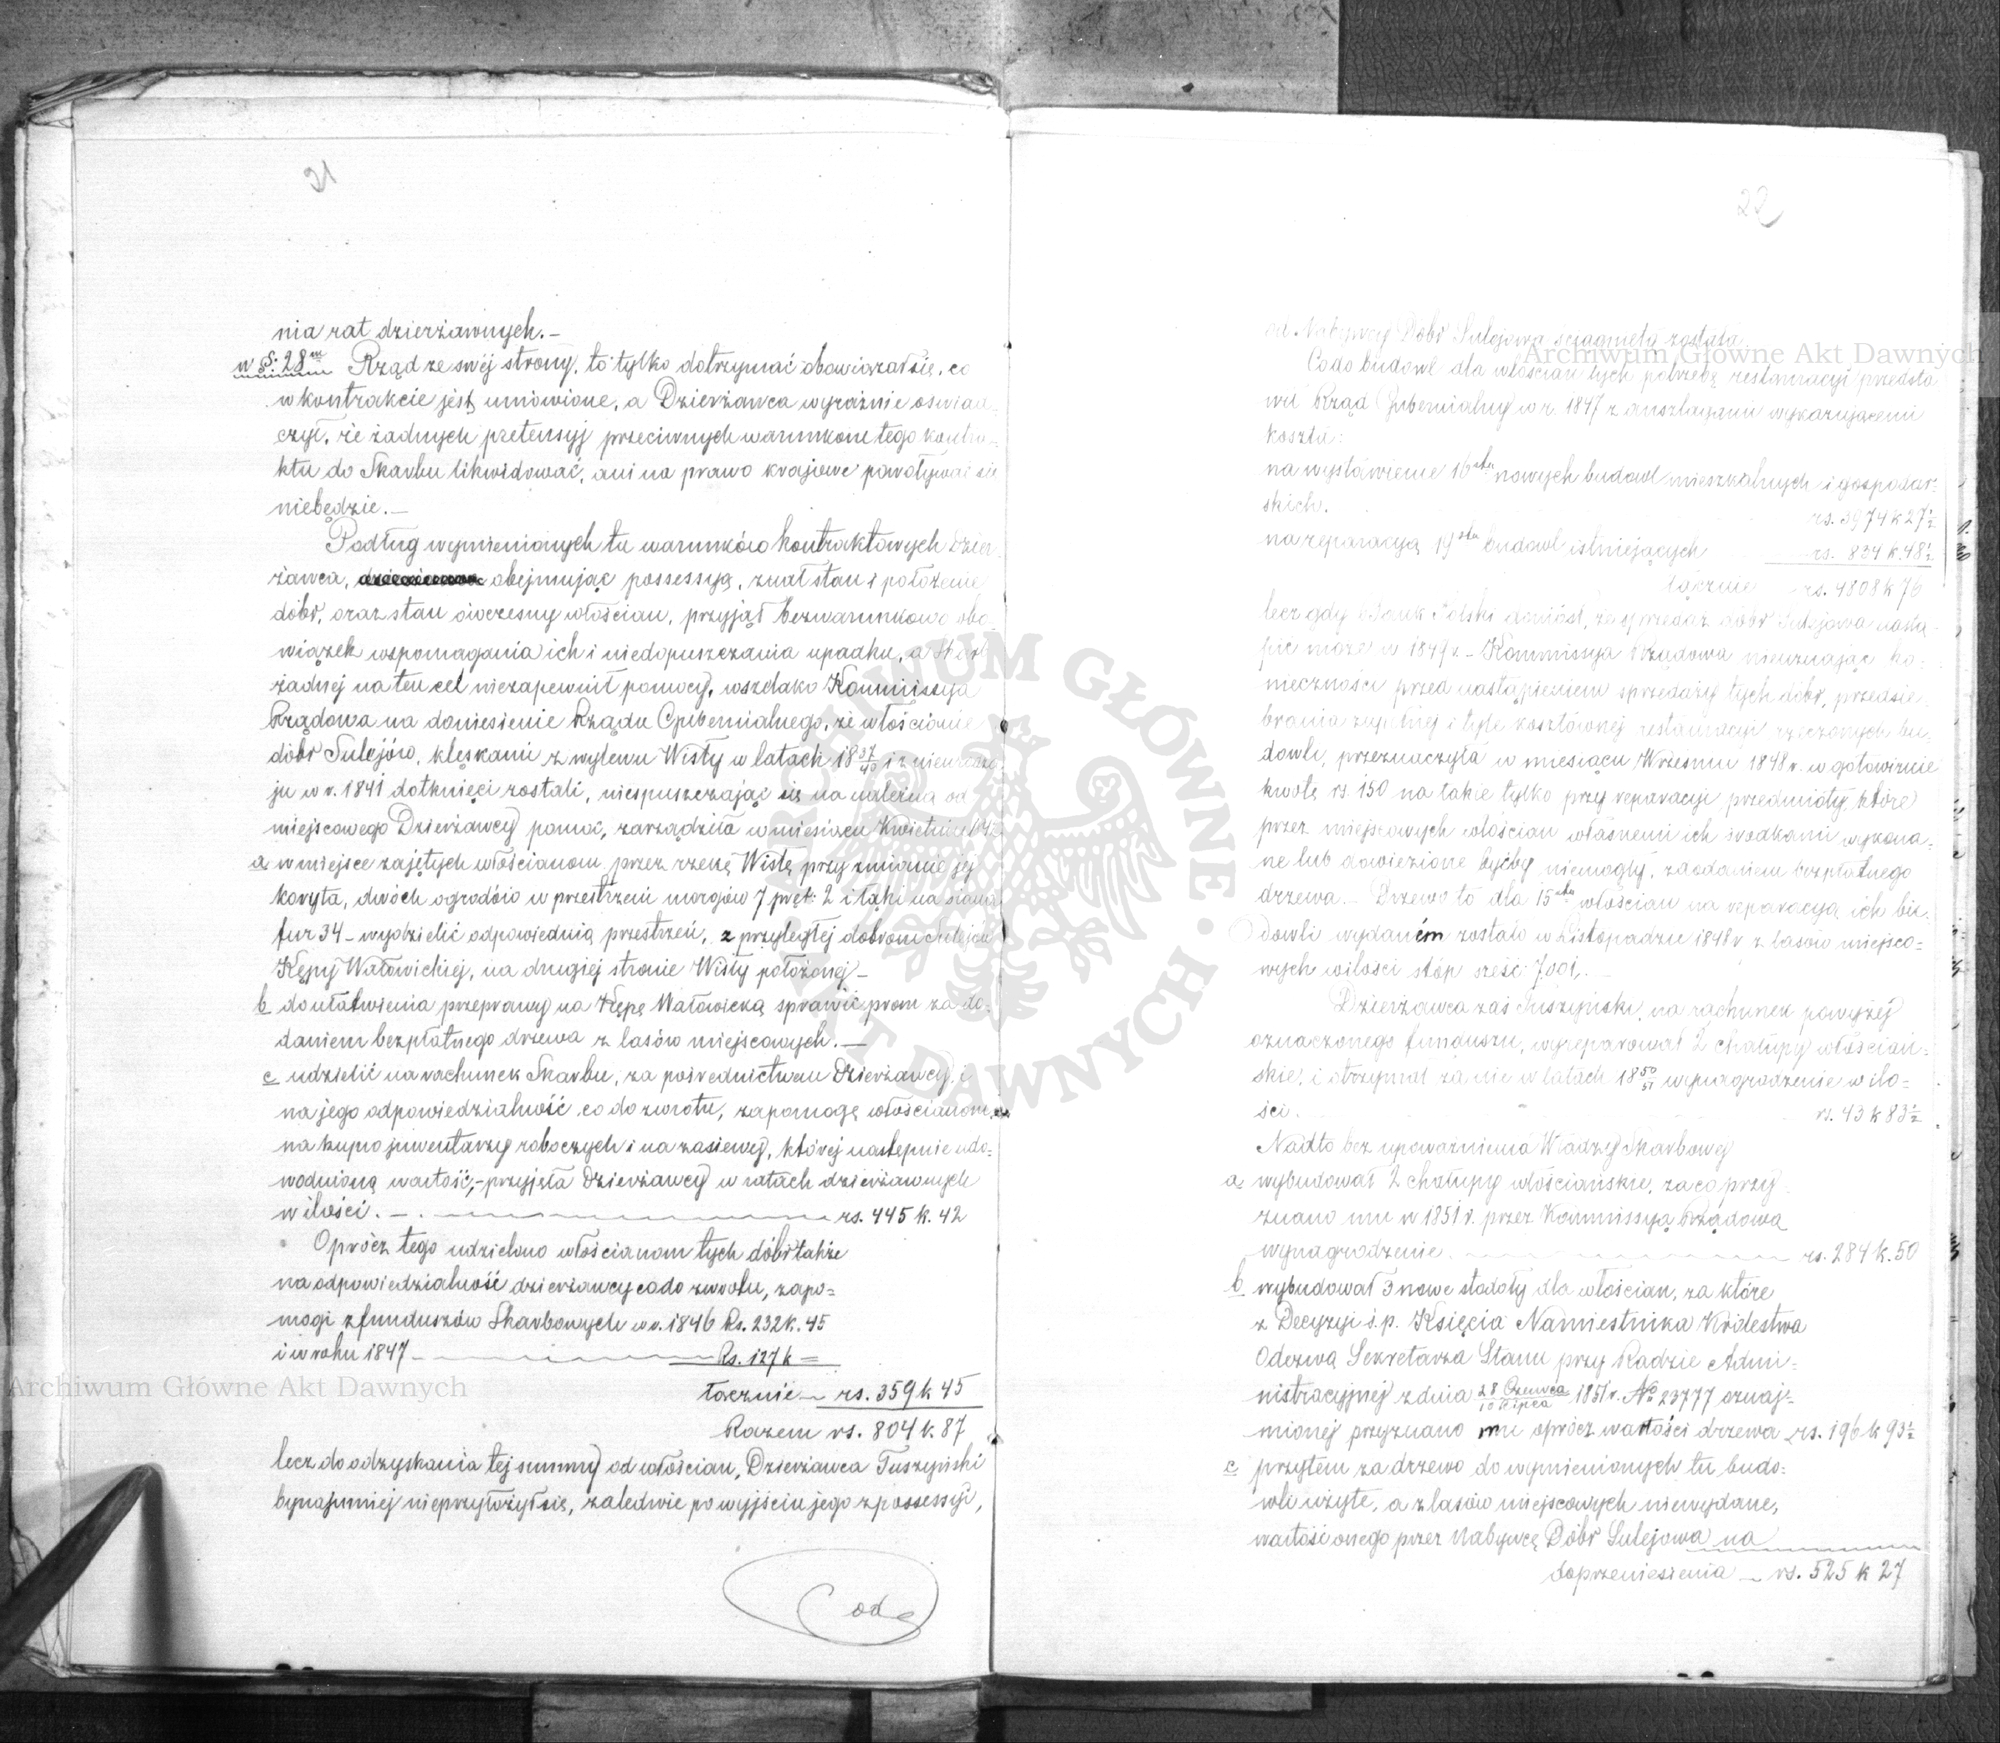 21
nia rat dzierżawnych.—
w §. 28m Rząd ze swéj strony, to tylko dotrzymać obowiązał się, co
w kontrakcie jest umówione, a Dzierżawca wyraźnie oświad-
czył, że żadnych pretensyj przeciwnych warunkom tego kontra-
ktu do Skarbu likwidować, ani na prawo krajowe powoływać się
niebędzie.—
Podług wymienionych tu warunków kontraktowych Dzier-
żawca, obejmując possessyą, znał stan i położenie
dóbr, oraz stan ówczesny włościan, przyjął bezwarunkowo obo-
wiązek wspomagania ich i niedopuszczania upadku, a Skarb
żadnej na ten cel niezapewnił pomocy, wszelako Kommissya
Rządowa na doniesienie Rządu Gubernialnego, że włościanie
dóbr Sulejów, klęskami z wylewu Wisły w latach 18 37/40 i z nieurodza-
ju w r. 1841 dotknięci zostali, niespuszczając się na należną od
miejscowego Dzierżawcy pomoc, zarządziła w miesiącu Kwietniu
a w miejsce zajętych włościanom przez rzekę Wisłę przy zmianie jéj
koryta, dwóch ogrodów w przestrzeni morgów 7 pręt: 2 i łąki na siana
fur 34 – wydzielić odpowiednią przestrzeń, z przyległej dobrom Sulejów
Kępy Wałowickiej, na drugiej stronie Wisły położonej –
b do ułatwienia przeprawy na Kępę Wałowicką sprawić prom za do-
daniem bezpłatnego drzewa z lasów miejscowych.—
c udzielić na rachunek Skarbu, za pośrednictwem Dzierżawcy, i
na jego odpowiedzialność co do zwrotu, zapomogę włościanom,
na kupno inwentarzy roboczych i na zasiewy, której następnie udo-
wodnioną wartość,– przyjęła Dzierżawcy w ratach dzierżawnych
w ilości. — rs. 445 k. 42
Oprócz tego udzielono włościanom tych dóbr także
na odpowiedzialność dzierżawcy co do zwrotu, zapo-
mogi z funduszów Skarbowych w r. 1846 Rs. 232 k. 45
i w roku 1847 — Rs. 127 k =
łącznie — rs. 359 k 45
Razem rs. 804 k. 87
lecz do odzyskania tej summy od włościan, Dzierżawca Tuszyński
bynajmniej nieprzyłożył się, zaledwie po wyjściu jego z possessyi,
od
22
od Nabywcy Dóbr Sulejowa ściągnięta została.
Co do budowl dla włościan tych potrzebę restauracyi przedsta-
wił Rząd Gubernialny w r. 1847 z anszlagami wykazującemi
koszta:
na wystawienie 16stu nowych budowl mieszkalnych i gospodar-
skich. rs. 3974 k 27½
na reparacyą 19stu budowl istniejących rs. 834 k. 48½
łącznie – rs. 4808 k 76
lecz gdy Bank Polski doniósł, że sprzedaż dóbr Sulejowa nastą-
pić może w 1849 r. – Kommissya Rządowa nieuznając ko-
nieczności przed nastąpieniem sprzedaży tych dóbr, przedsię-
brania zupełnej i tyle kosztównej restauracyi rzeczonych bu-
dowli, przeznaczyła w miesiącu Wrześniu 1848 r. w gotowiznie
kwotę rs. 150 na takie tylko przy reparacyi przedmioty, które
przez miejscowych włościan własnemi ich środkami wykona-
ne lub dowiezione byćby niemogły, za dodaniem bezpłatnego
drzewa.— Drzewo to dla 15stu włościan na reparacyą ich bu-
dowli wydaném zostało w Listopadzie 1848 r z lasów miejsco-
wych w ilości stóp sześć: 7.001.
Dzierżawca zaś Tuszyński, na rachunek powyżéj
oznaczonego funduszu, wyreparował 2 chałupy włościań-
skie, i otrzymał za nie w latach 18 50/51 wynagrodzenie w ilo-
ści. rs. 43 k 83½
Nadto bez upoważnienia Władzy Skarbowej
a wybudował 2 chałupy włościańskie, za co przy-
znano mu w 1851 r. przez Kommissyą Rządową
wynagrodzenie. — rs. 284 k. 50
b wybudował 3 nowe stodoły dla włościan, za które
z Decyzyi ś.p. Księcia Namiestnika Królestwa
Odezwą Sekretarza Stanu przy Radzie Admi-
nistracyjnéj z dnia 28 Czerwca/10 Lipca 1851 r. № 23777 oznaj-
mionej przyznano mu oprócz wartości drzewa rs. 196 k 93½
c przytem za drzewo do wymienionych tu budo-
wli użyte, a z lasów miejscowych niewydane,
wartość onego przez Nabywcę Dóbr Sulejowa na
doprzeniesienia — rs. 525 k 27
Archiwum Główne Akt Dawnych
Archiwum Główne Akt Dawnych
ARCHIWUM GŁÓWNE AKT DAWNYCH